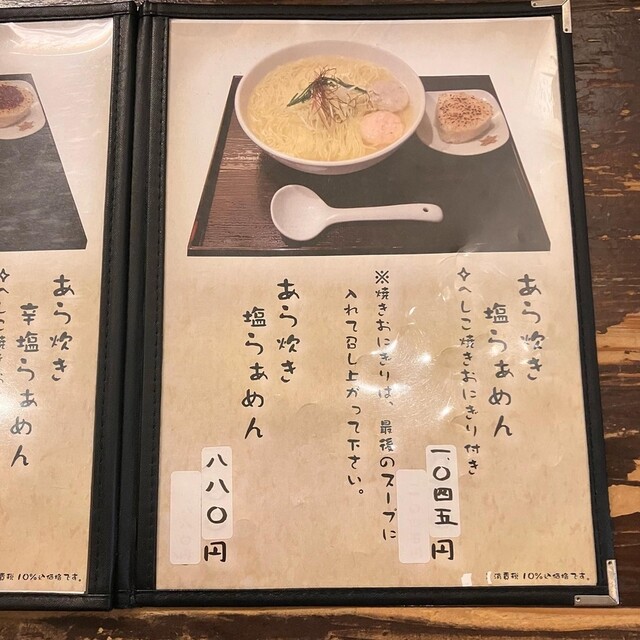 あら炊き
塩らぁめん
✧へしこ焼きおにぎり付き
一、〇四五円
※焼きおにぎりは、最後のスープに
入れて召し上がって下さい。
あら炊き
塩らぁめん
八八〇円
消費税10%込価格です。
あら炊き
辛塩らぁめん
✧へしこ焼き
10%込価格です。